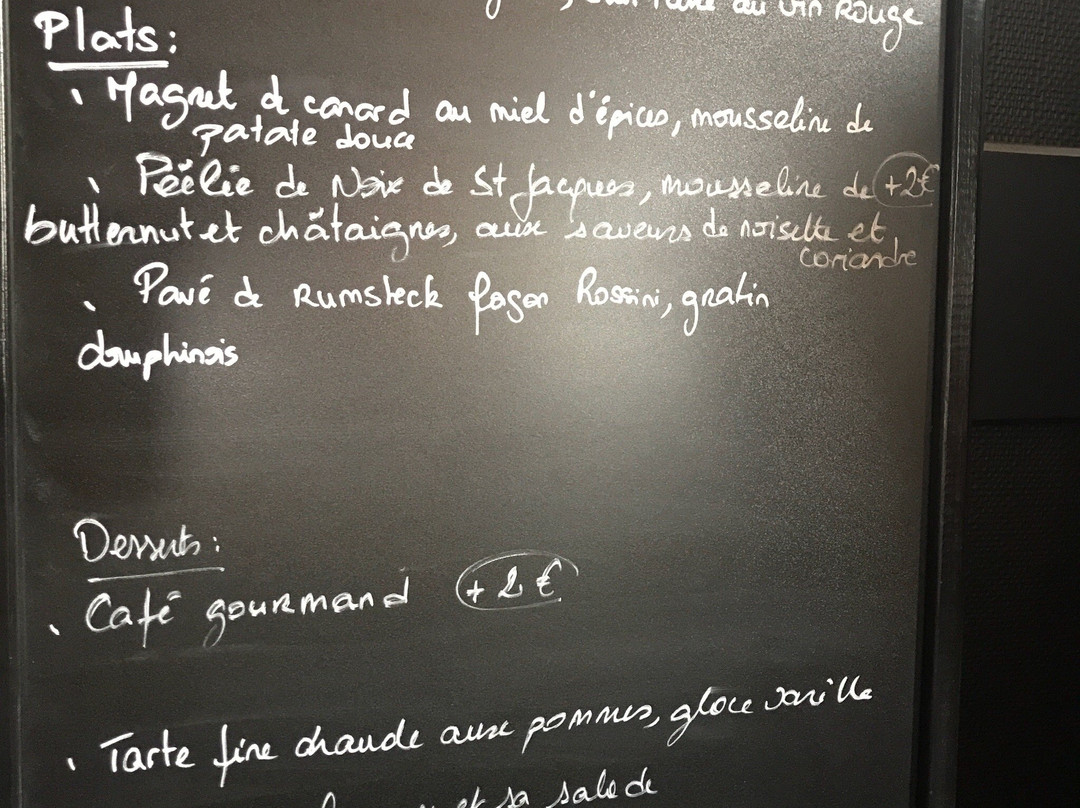 au vin Rouge
Plats :
Magret de canard au miel d'épices, mousseline de
patate douce
Pöêlée de Noix de St Jacques, mousseline de +2€
butternut et châtaignes, aux saveurs de noisette et
coriandre
Pavé de Rumsteck façon Rossini, gratin
dauphinois
Desserts :
Café gourmand +2€
Tarte fine chaude aux pommes, glace vanille
et sa salade